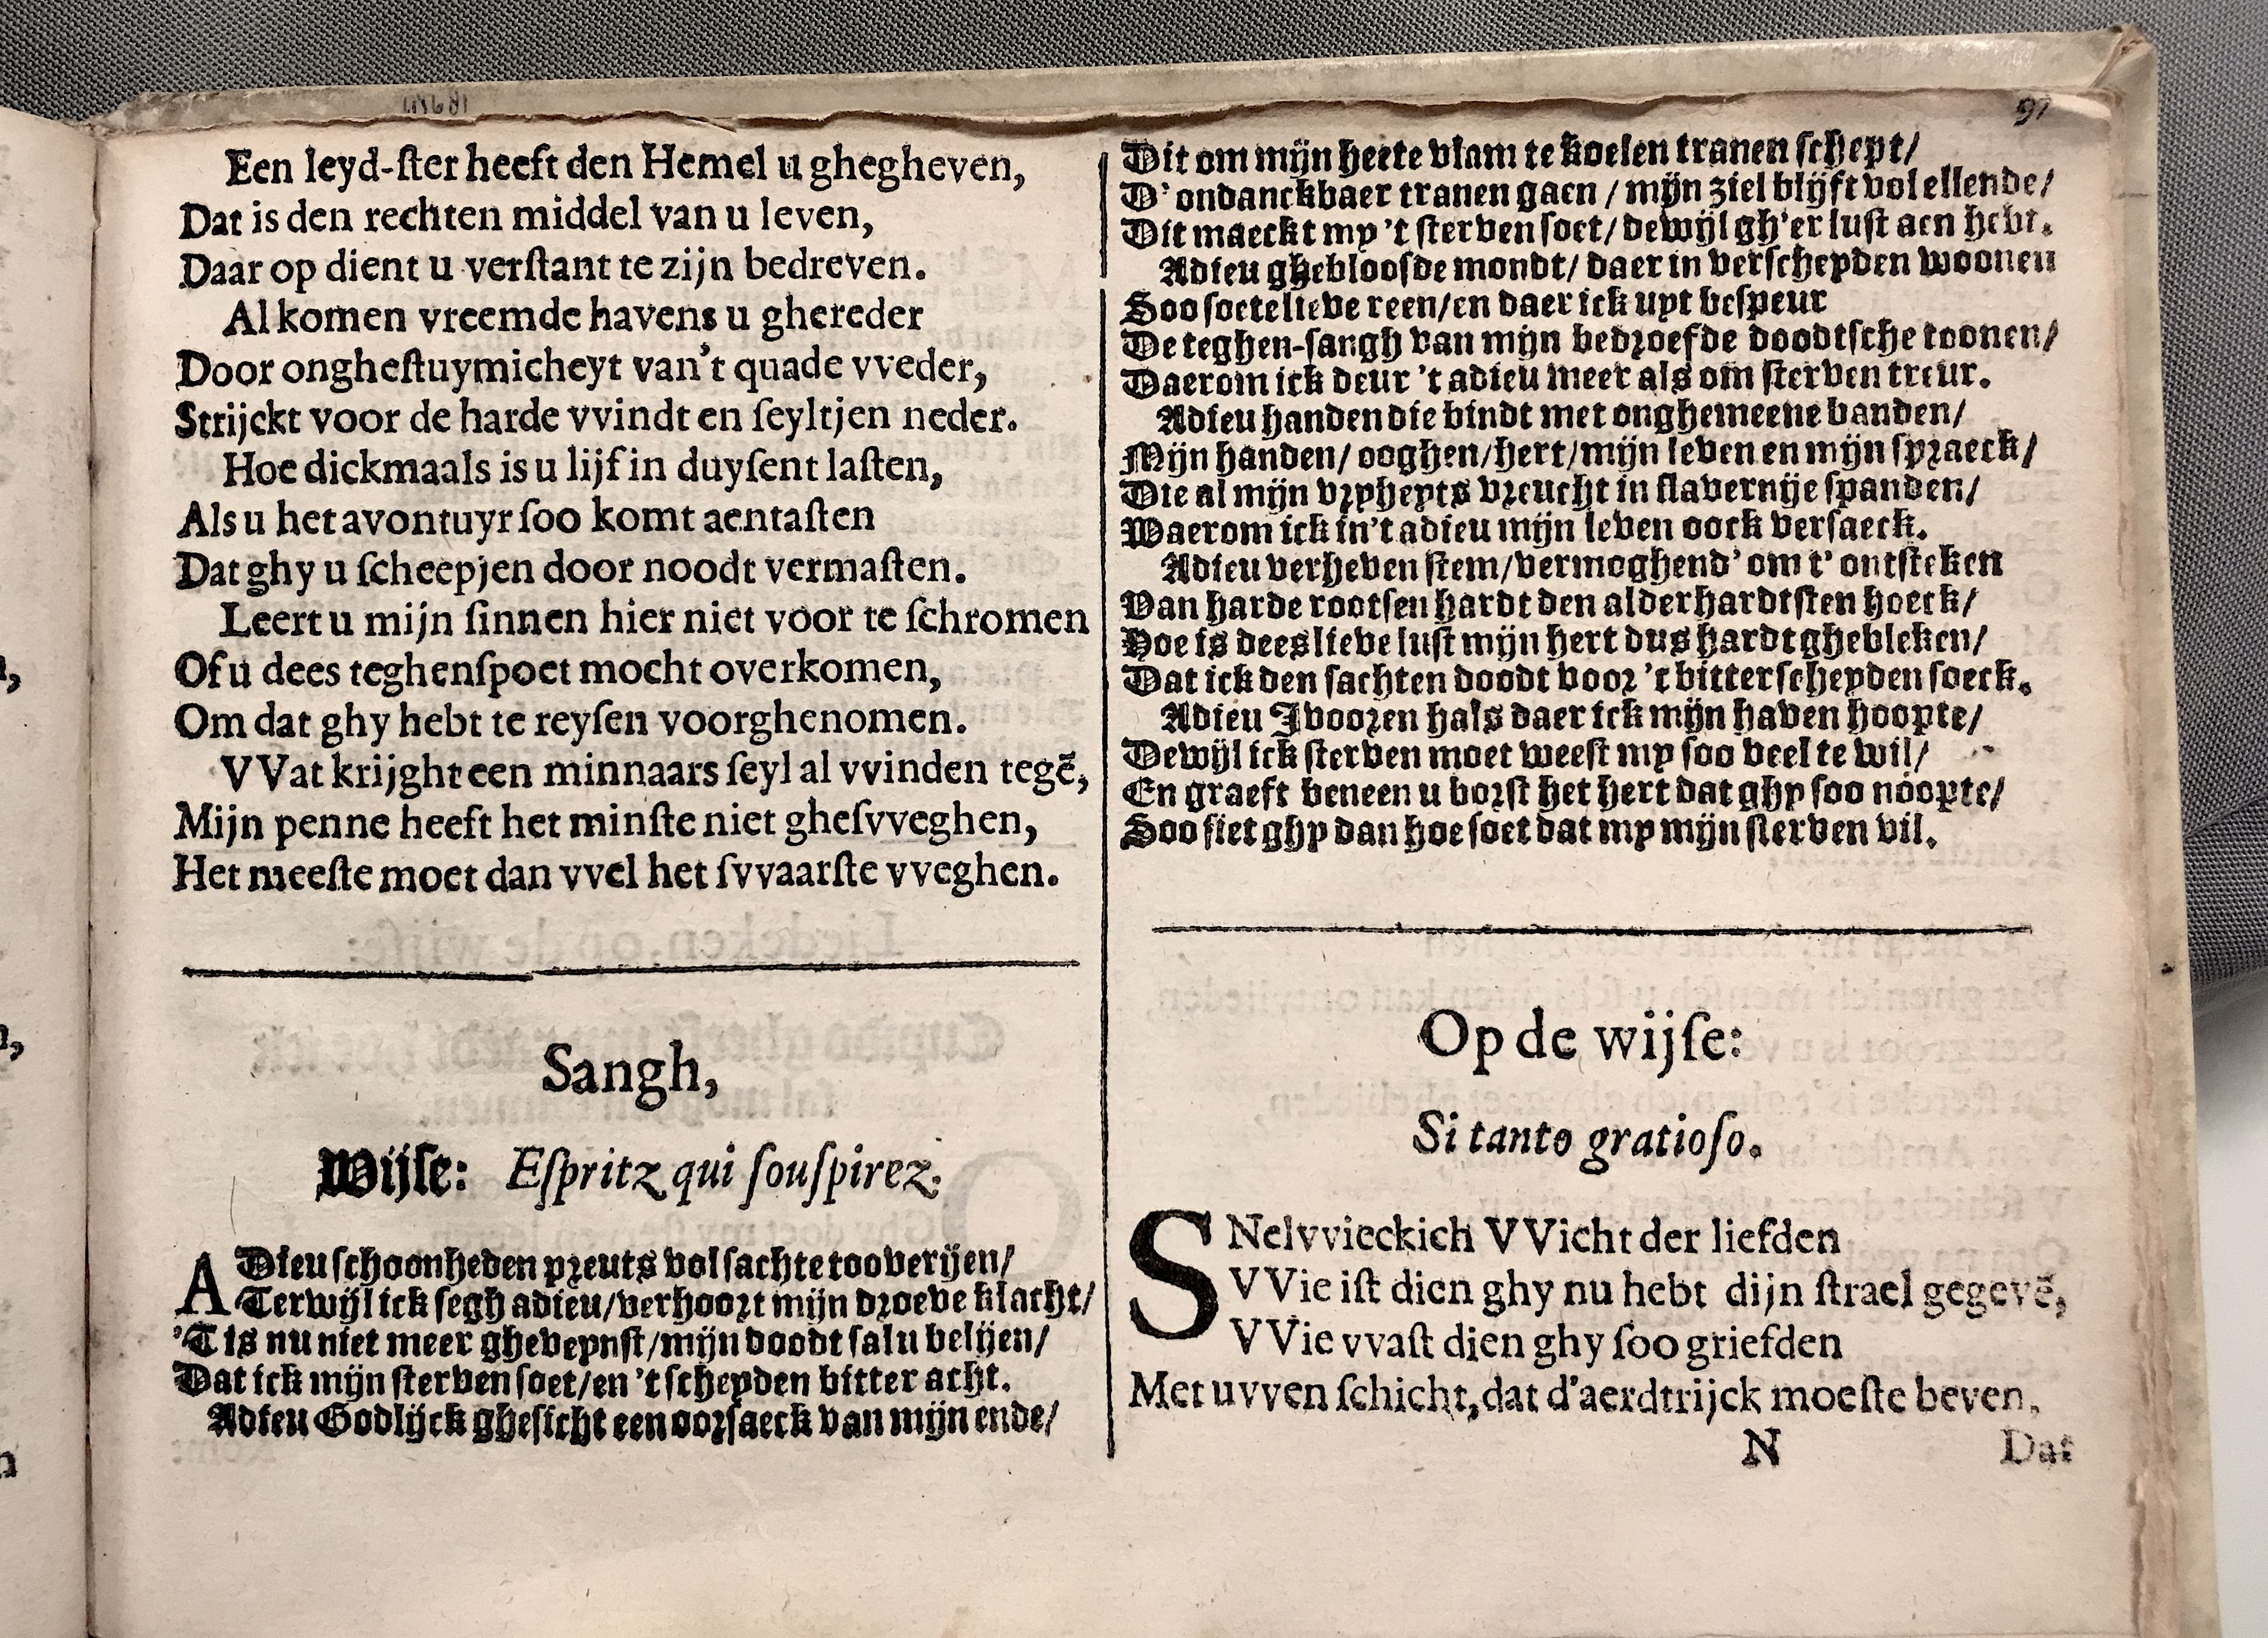 Een leyd-ſter heeft den Hemel u ghegheven,
Dat is den rechten middel van u leven,
Daar op dient u verſtant te zijn bedreven.
Al komen vreemde havens u ghereder
Door ongheſtuymicheyt van't quade vveder,
Strijckt voor de harde vvindt en ſeyltjen neder.
Hoe dickmaals is u lijf in duyſent laſten,
Als u het avontuyr ſoo komt aentaſten
Dat ghy u ſcheepjen door noodt vermaſten.
Leert u mijn ſinnen hier niet voor te ſchromen
Of u dees teghenſpoet mocht overkomen,
Om dat ghy hebt te reyſen voorghenomen.
VVat krijght een minnaars ſeyl al vvinden tegē,
Mijn penne heeft het minſte niet gheſvveghen,
Het meeſte moet dan vvel het ſvvaarſte vveghen.
Sangh,
Wijſe: Eſpritz qui ſouſpirez.
ADieu ſchoonheden preuts vol ſachte tooverijen/
Terwijl ick ſegh adieu/verhoort mijn droeve klacht/
'T is nu niet meer gheveynſt/mijn doodt ſal u belijen/
Dat ick mijn ſterven ſoet/en 't ſcheyden bitter acht.
Adieu Godlijck gheſicht een oorſaeck van mijn ende/
97
Dit om mijn heete vlam te koelen tranen ſchept/
D' ondanckbaer tranen gaen / mijn ziel blijft vol ellende/
Dit maeckt my 't ſterven ſoet/ dewijl gh'er luſt aen hebt.
Adieu ghebloosde mondt/ daer in verſcheyden woonen
Soo ſoete lieve reen/en daer ick uyt beſpeur
De teghen-ſangh van mijn bedroefde doodtſche toonen/
Daerom ick deur 't adieu meer als om ſterven treur.
Adieu handen die bindt met onghemeene banden/
Mijn handen/ ooghen/hert/mijn leven en mijn ſpraeck/
Die al mijn vryheyts vreucht in ſlavernije ſpanden/
Waerom ick in't adieu mijn leven oock verſaeck.
Adieu verheven ſtem/vermoghend' om t' ontſteken
Van harde rootſen hardt den alderhardtſten hoeck/
Hoe is dees lieve luſt mijn hert dus hardt ghebleken/
Dat ick den ſachten doodt voor 't bitter ſcheyden ſoeck.
Adieu Ivooren hals daer ick mijn haven hoopte/
Dewijl ick ſterven moet weeſt my ſoo veel te wil/
En graeft beneen u borſt het hert dat ghy ſoo noopte/
Soo ſiet ghy dan hoe ſoet dat my mijn ſterven vil.
Op de wijſe:
Si tanto gratioſo.
SNelvvieckich VVicht der liefden
VVie iſt dien ghy nu hebt dijn ſtrael gegevē,
VVie vvaſt dien ghy ſoo griefden
Met uvven ſchicht, dat d'aerdtrijck moeſte beven,
N Dat